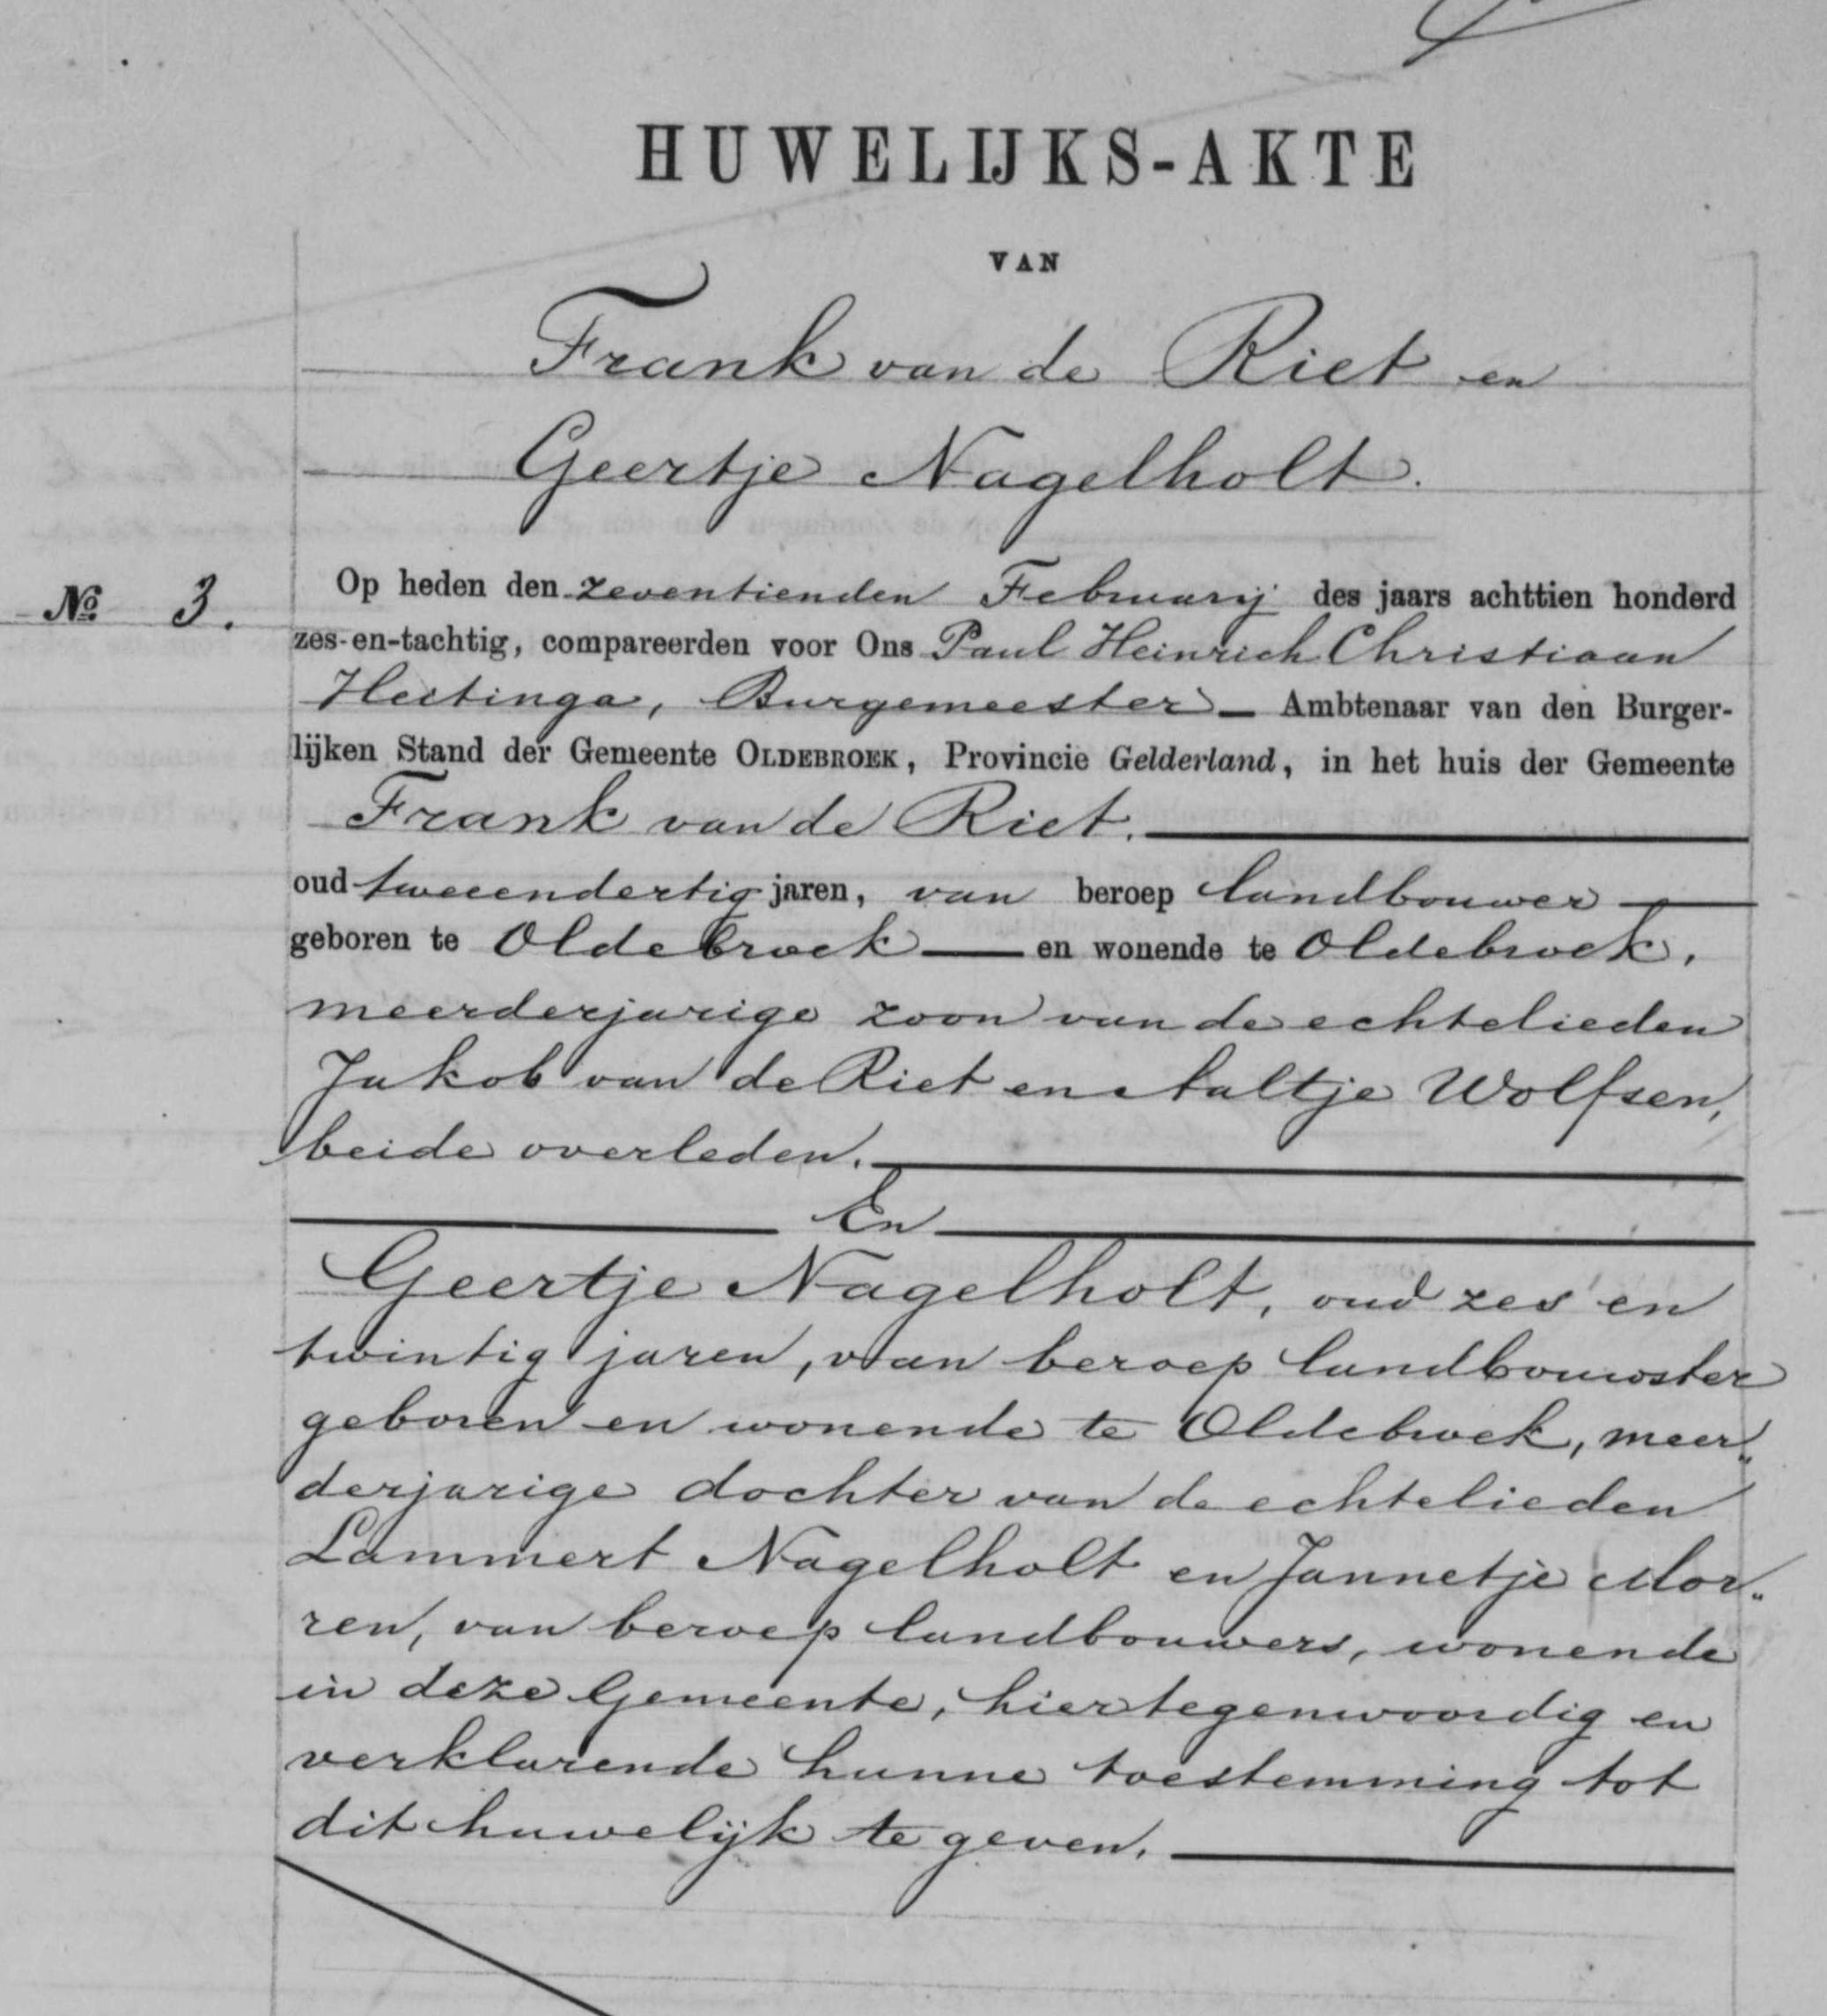 HUWELIJKS-AKTE
VAN
Frank van de Riet en
Geertje Nagelholt.
No 3.
Op heden den zeventienden Februarij des jaars achttien honderd
zes-en-tachtig, compareerden voor Ons Paul Heinrich Christiaan
Heitinga, Burgemeester Ambtenaar van den Burger-
lijken Stand der Gemeente OLDEBROEK, Provincie Gelderland, in het huis der Gemeente
Frank van de Riet.
oud tweeendertig jaren, van beroep landbouwer
geboren te Oldebroek en wonende te Oldebroek,
meerderjarige zoon van de echtelieden
Jakob van de Riet en Aaltje Wolfsen,
beide overleden.
En
Geertje Nagelholt, oud zes en
twintig jaren, van beroep landbouwster
geboren en wonende te Oldebroek, meer„
derjarige dochter van de echtelieden
Lammert Nagelholt en Jannetje Mor„
ren, van beroep landbouwers, wonende
in deze Gemeente, hier tegenwoordig en
verklarende hunne toestemming tot
dit huwelijk te geven.